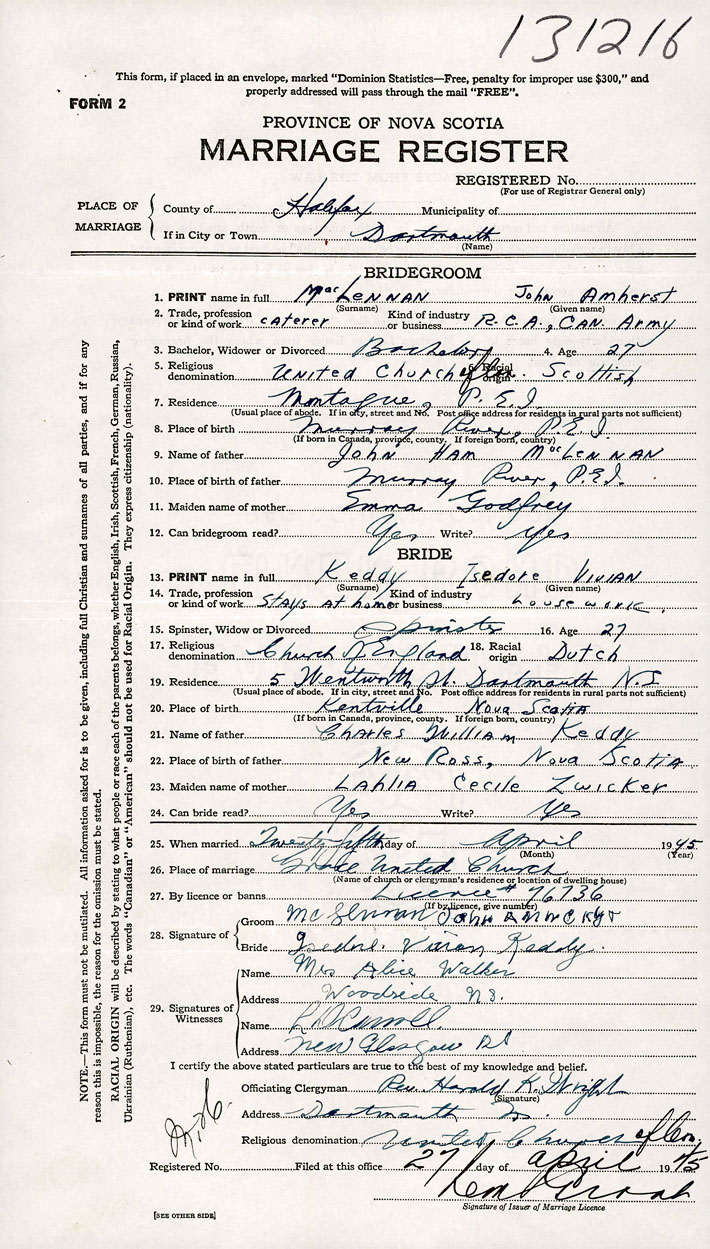 131216
This form, if placed in an envelope, marked "Dominion Statistics—Free, penalty for improper use $300," and
properly addressed will pass through the mail "FREE".
FORM 2
PROVINCE OF NOVA SCOTIA
MARRIAGE REGISTER
REGISTERED No.
(For use of Registrar General only)
PLACE OF MARRIAGE
County of Halifax Municipality of
If in City or Town Dartmouth
(Name)
BRIDEGROOM
1. PRINT name in full MacLENNAN John Amherst
(Surname) (Given name)
2. Trade, profession or kind of work caterer Kind of industry or business R.C.A., CAN. Army
3. Bachelor, Widower or Divorced Bachelor 4. Age 27
5. Religious denomination United Church of Can. 6. Racial origin Scottish
7. Residence Montague, P.E.I.
(Usual place of abode. If in city, street and No. Post office address for residents in rural parts not sufficient)
8. Place of birth Murray River, P.E.I.
(If born in Canada, province, county. If foreign born, country)
9. Name of father John Ham MacLENNAN
10. Place of birth of father Murray River, P.E.I.
11. Maiden name of mother Emma Godfrey
12. Can bridegroom read? Yes Write? Yes
BRIDE
13. PRINT name in full Keddy Isedore VIVIAN
(Surname) (Given name)
14. Trade, profession or kind of work Stays at home Kind of industry or business housework.
15. Spinster, Widow or Divorced Spinster 16. Age 27
17. Religious denomination Church of England 18. Racial origin Dutch
19. Residence 5 Wentworth St. Dartmouth N.S
(Usual place of abode. If in city, street and No. Post office address for residents in rural parts not sufficient)
20. Place of birth Kentville Nova Scotia
(If born in Canada, province, county. If foreign born, country)
21. Name of father Charles William Keddy
22. Place of birth of father New Ross, Nova Scotia
23. Maiden name of mother LAHLIA Cecile Zwicker
24. Can bride read? Yes Write? Yes
25. When married Twenty fifth day of April 1945
(Month) (Year)
26. Place of marriage Grace United Church
(Name of church or clergyman's residence or location of dwelling house)
27. By licence or banns Licence # 76736
(If by licence, give number)
28. Signature of
Groom McLennan John
Bride Isedore Vivian Keddy.
29. Signatures of Witnesses
Name Mrs Alice Walker
Address Woodside N.S.
Name
Address New Glasgow
I certify the above stated particulars are true to the best of my knowledge and belief.
Officiating Clergyman Rev. Harold K. Wright
(Signature)
Address Dartmouth
Religious denomination United Church of Can.
Registered No. Filed at this office 27 day of april 1945
Signature of Issuer of Marriage Licence
[SEE OTHER SIDE]
NOTE.—This form must not be mutilated. All information asked for is to be given, including full Christian and surnames of all parties, and if for any
reason this is impossible, the reason for the omission must be stated.
RACIAL ORIGIN will be described by stating to what people or race each of the parents belongs, whether English, Irish, Scottish, French, German, Russian,
Ukrainian (Ruthenian), etc. The words "Canadian" or "American" should not be used for Racial Origin. They express citizenship (nationality).